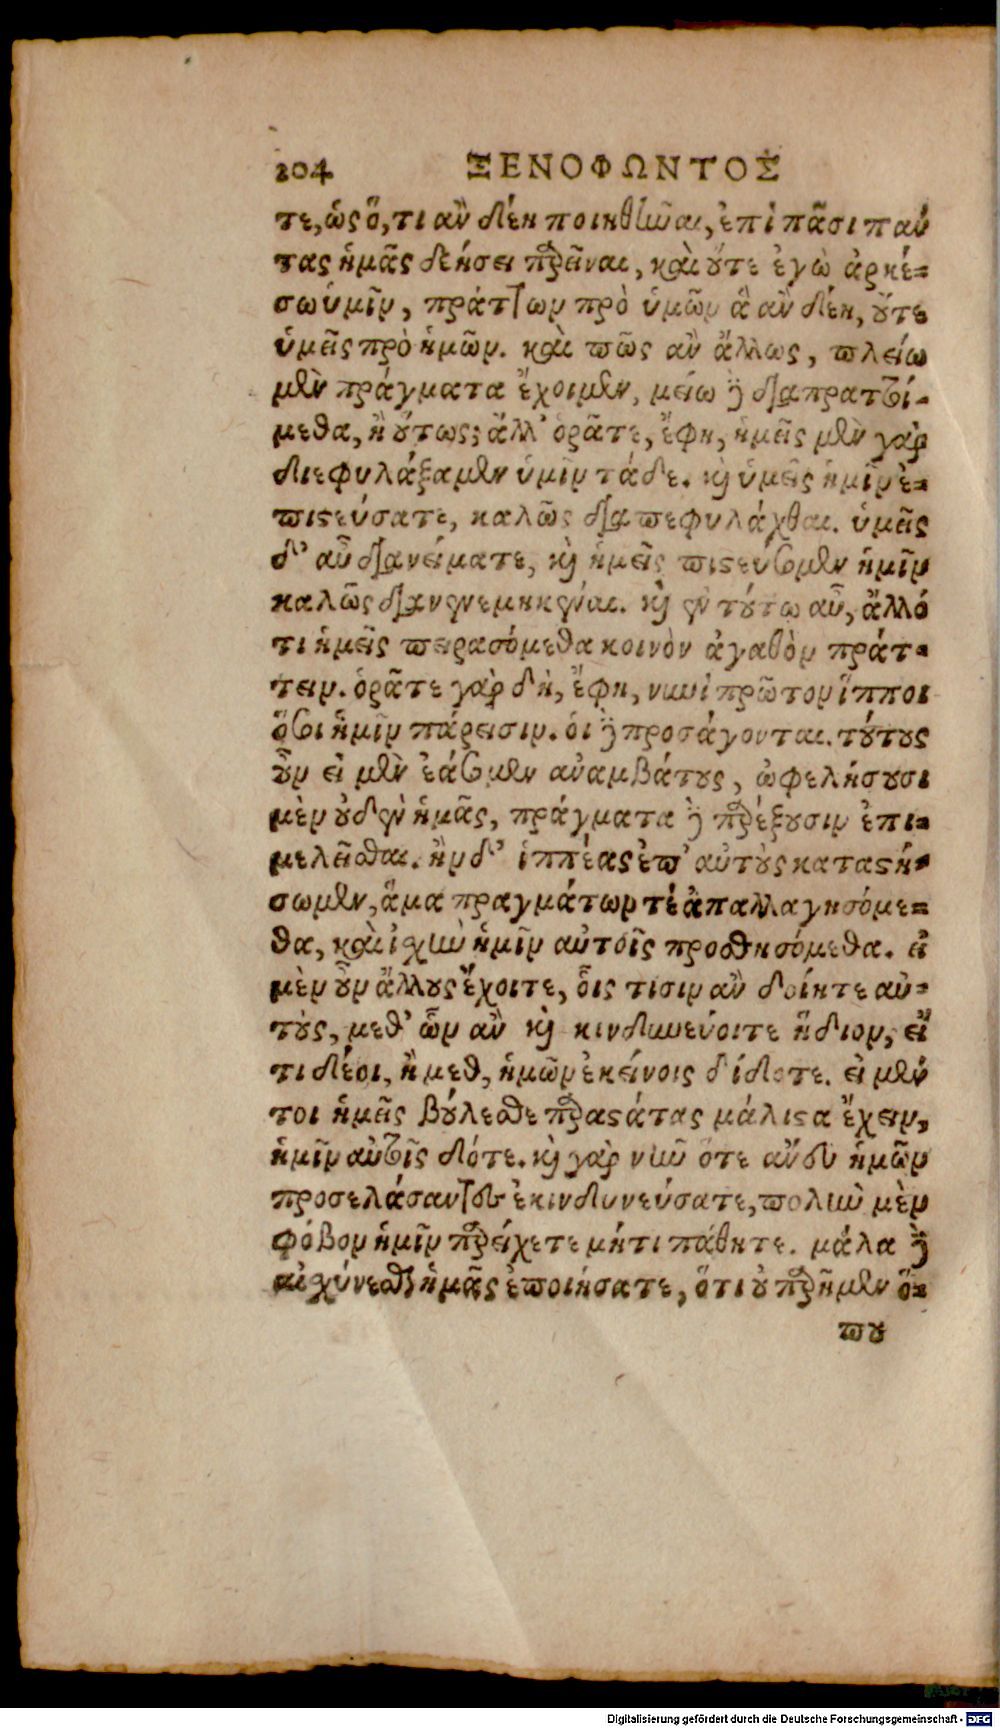 204 ΞΕΝΟΦΩΝΤΟΣ
τε, ὡς ὅ,τι ἂν δέῃ ποιηθῆναι, ἐπὶ πᾶσι πάν
τας ἡμᾶς δεήσει παρεῖναι, καὶ οὔτε ἐγὼ ἀρκέ-
σω ὑμῖν, πράττων πρὸ ὑμῶν ἃ ἂν δέῃ, οὔτε
ὑμεῖς πρὸ ἡμῶν. καὶ πῶς ἂν ἄλλως, πλείω
μὲν πράγματα ἔχοιμεν, μείω δὲ διαπραττοί-
μεθα, ἢ οὕτως; ἀλλ' ὁρᾶτε, ἔφη, ἡμεῖς μὲν γὰρ
διεφυλάξαμεν ὑμῖν τάδε. καὶ ὑμεῖς ἡμῖν ἐ-
πιστεύσατε, καλῶς διαπεφυλάχθαι. ὑμεῖς
δ' αὖ διανείματε, καὶ ἡμεῖς πιστεύσομεν ἡμῖν
καλῶς διανενεμηκέναι. καὶ ἐν τούτῳ αὖ, ἄλλό
τι ἡμεῖς πειρασόμεθα κοινὸν ἀγαθὸν πράτ-
τειν. ὁρᾶτε γὰρ δὴ, ἔφη, νυνὶ πρῶτον ἵπποι
ὅσοι ἡμῖν πάρεισιν. οἱ δὲ προσάγονται. τούτους
οὖν εἰ μὲν ἐάσομεν ἀναμβάτους, ὠφελήσουσι
μὲν οὐδὲν ἡμᾶς, πράγματα δὲ παρέξουσιν ἐπι-
μελεῖσθαι. ἢν δ' ἱππέας ἐπ' αὐτοὺς καταστή-
σωμεν, ἅμα πραγμάτων τε ἀπαλλαγησόμε-
θα, καὶ ἰσχὺν ἡμῖν αὐτοῖς προσθησόμεθα. εἰ
μὲν οὖν ἄλλους ἔχοιτε, οἷς τισιν ἂν δοίητε αὐ-
τοὺς, μεθ' ὧν ἂν καὶ κινδυνεύοιτε ἥδιον, εἴ
τι δέοι, ἢ μεθ, ἡμῶν ἐκείνοις δίδοτε. εἰ μέν
τοι ἡμᾶς βούλεσθε παραστάτας μάλιστα ἔχειν,
ἡμῖν αὐτοῖς δότε. καὶ γὰρ νῦν ὅτε ἄνευ ἡμῶν
προσελάσαντες ἐκινδυνεύσατε, πολὺν μὲν
φόβον ἡμῖν παρείχετε μήτι πάθητε. μάλα δὲ
αἰσχύνεσθαι ἡμᾶς ἐποιήσατε, ὅτι οὐ παρῆμεν ὅ-
που
Digitalisierung gefördert durch die Deutsche Forschungsgemeinschaft - DFG